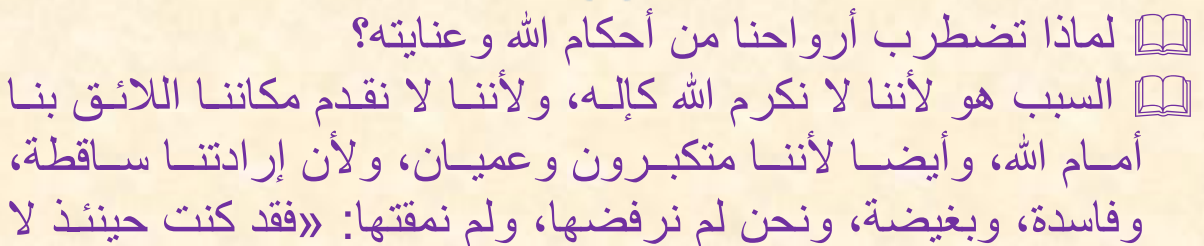 📖 لماذا تضطرب أرواحنا من أحكام الله وعنايته؟
📖 السبب هو لأننا لا نكرم الله كإلـه، ولأننـا لا نقـدم مكاننـا اللائـق بنـا
أمـام الله، وأيضـا لأننـا متكبـرون وعميـان، ولأن إرادتنـا سـاقطة،
وفاسدة، وبغيضة، ونحن لم نرفضها، ولم نمقتها: «فقد كنت حينئـذ لا